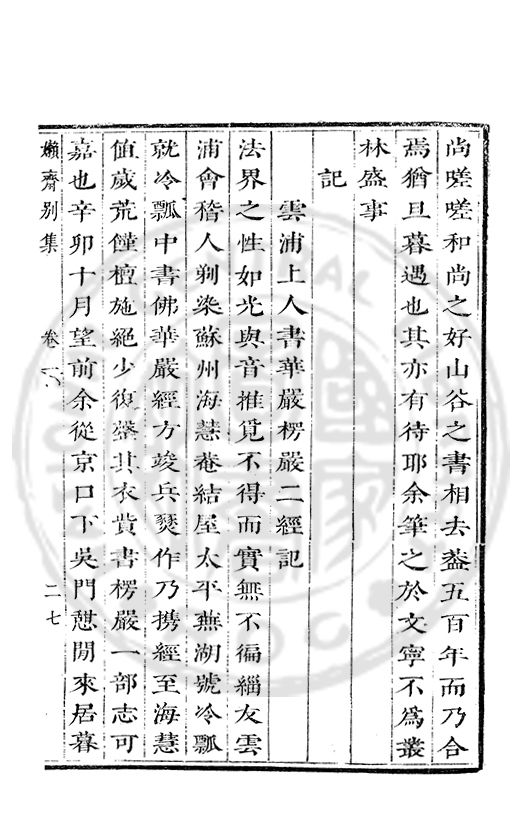 尚嗟嗟和尚之好山谷之書相去葢五百年而乃合
焉猶旦暮遇也其亦有待耶余筆之於文寧不爲叢
林盛事
記
雲浦上人書華嚴楞嚴二經記
法界之性如光與音推覓不得而實無不徧緇友雲
浦會稽人剃染蘇州海慧菴結屋太平蕪湖號冷瓢
就冷瓢中書佛華嚴經方竣兵燹作乃携經至海慧
值歲荒饉檀施絕少復罄其衣貲書楞嚴一部志可
嘉也辛卯十月望前余從京口下吳門憇閒來居暮
嬾齋别集
卷一
二七